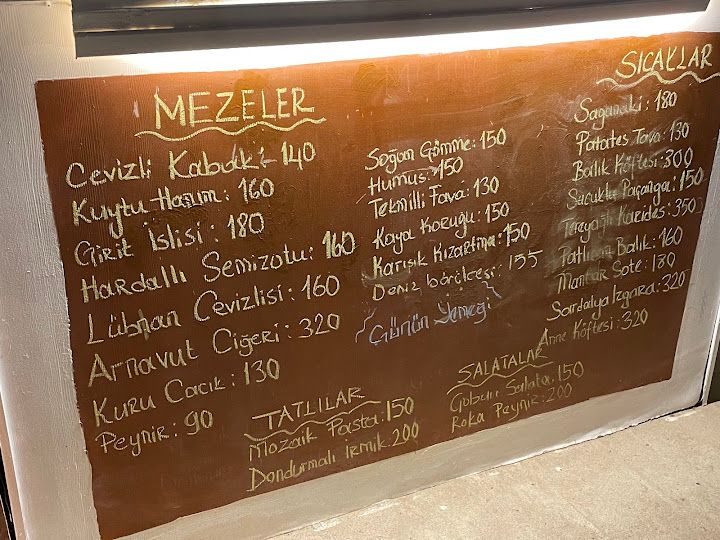 MEZELER
Cevizli Kabak: 140
Kuytu Hanım: 160
Girit İslisi: 180
Hardallı Semizotu: 160
Lübnan Cevizlisi: 160
Arnavut Ciğeri: 320
Kuru Cacık: 130
Peynir: 90
Soğan Gömme: 150
Humus: 150
Tekmilli Fava: 130
Kaya Koruğu: 150
Karışık Kızartma: 150
Deniz börülcesi: 155
Günün Yemeği
TATLILAR
Mozaik Pasta: 150
Dondurmalı İrmik: 200
SALATALAR
Çoban Salata: 150
Roka Peynir: 200
SICAKLAR
Saganaki: 180
Patates Tava: 130
Balık Köftesi: 300
Sucuklu Paçanga: 150
Tereyağlı Karides: 350
Patlıcan Balık: 160
Mantar Sote: 180
Sardalya Izgara: 320
Anne Köftesi: 320